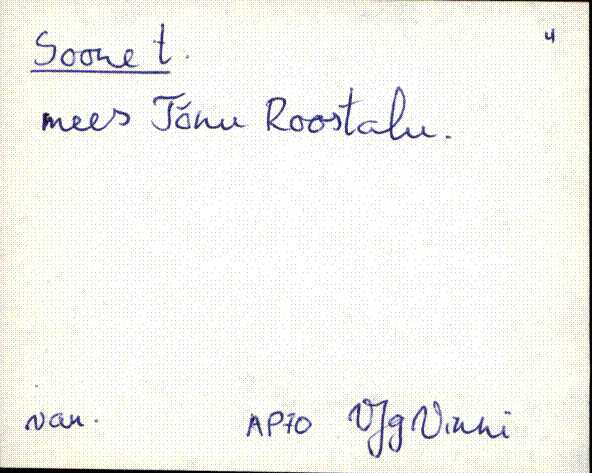 Soone t. 4
mees Tõnu Roostalu.
van. AP70 VJg Vinni